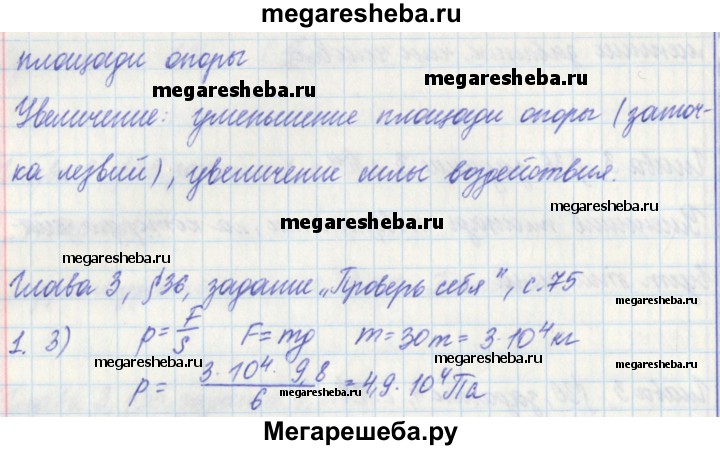 megaresheba.ru
площади опоры
megaresheba.ru
megaresheba.ru
Увеличение: уменьшение площади опоры (заточ-
ка лезвий), увеличение силы воздействия.
megaresheba.ru
megaresheba.ru
megaresheba.ru
Глава 3, §36, задание „Проверь себя", с. 75
1. 3) p = F/S F = mg m = 30т = 3·10⁴ кг
megaresheba.ru
megaresheba.ru
p = 3·10⁴·9,8/6 = 4,9·10⁴ Па
megaresheba.ru
Мегарешеба.ру